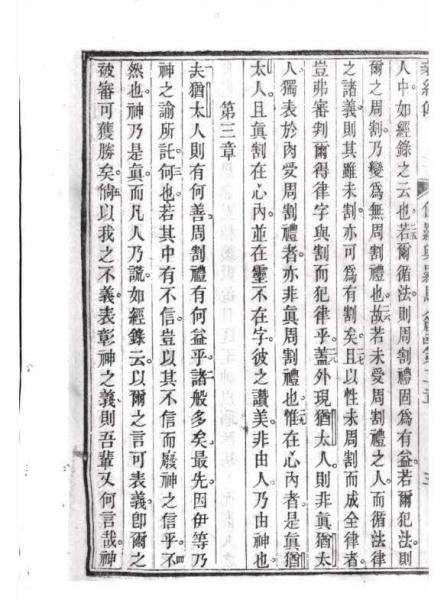 人中。如經錄之云也。若爾循法。則周割禮固爲有益。若爾犯法。則
爾之周割。乃變爲無周割禮也。故若未受周割禮之人。而循法律
之諸義。則其雖未割。亦可爲有割矣。且以性未周割而成全律者。
豈弗審判爾得律字與割而犯律乎。蓋外現猶太人。則非眞猶太
人。獨表於肉受周割禮者。亦非眞周割禮也。惟在心內者是眞猶
太人。且眞割在心內。並在靈不在字。彼之讚美。非由人。乃由神也。
第三章
夫猶太人則有何善。周割禮有何益乎。諸般多矣。最先因伊等乃
神之諭所託。何也。若其中有不信。豈以其不信而廢神之信乎。不
然也。神乃是眞。而凡人乃謊。如經錄云。以爾之言可表義。卽爾之
被審可獲勝矣。倘以我之不義。表彰神之義。則吾輩又何言哉。神